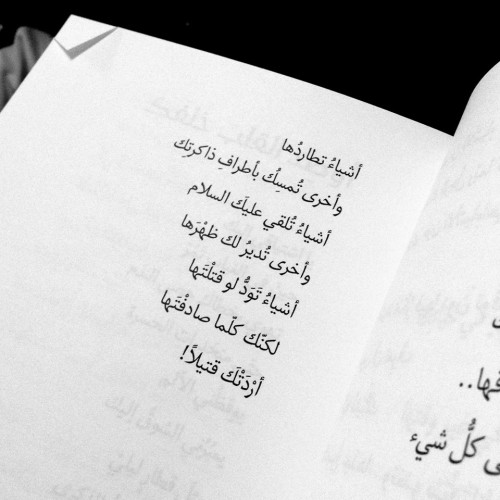 أشياءُ تطاردُها
وأخرى تُمسِكُ بأطرافِ ذاكرتِك
أشياءُ تُلقي عليكَ السلام
وأخرى تُديرُ لك ظهْرَها
أشياءُ تَوَدُّ لو قتلْتَها
لكنّك كلّما صادفْتَها
أرْدَتْكَ قتيلاً!
كلُّ شيء